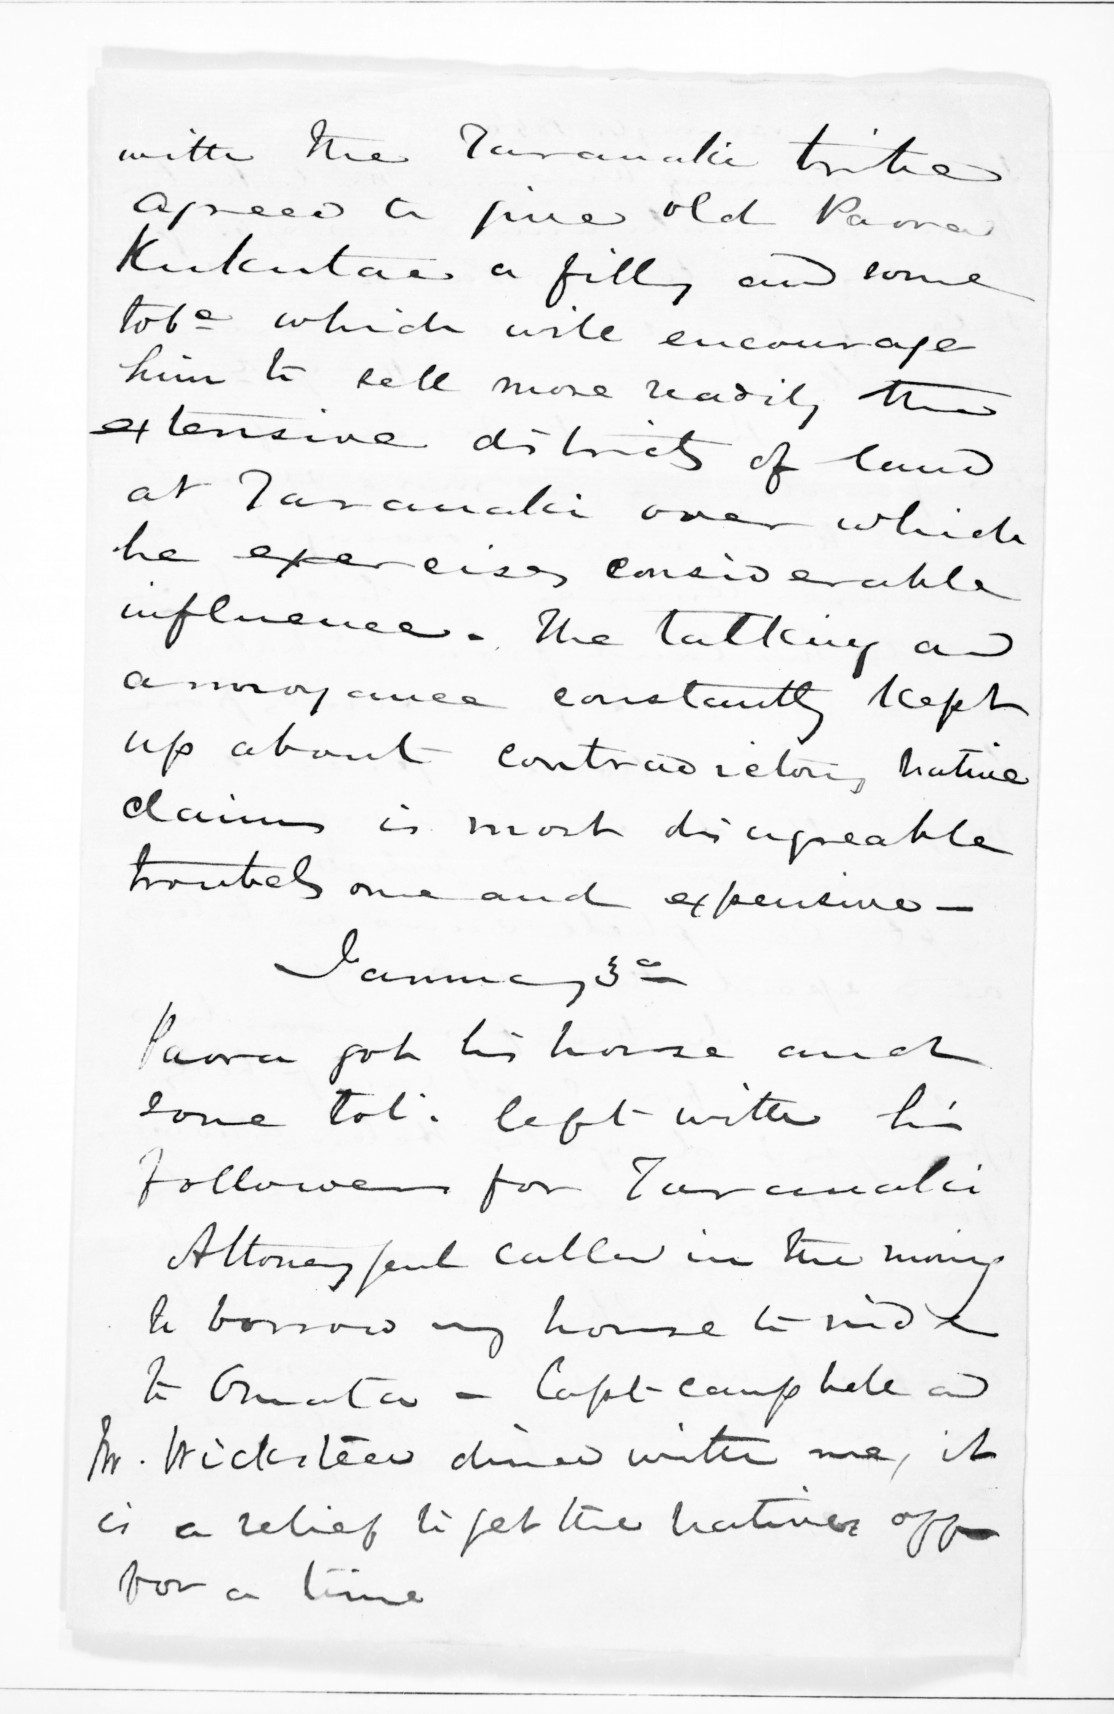 with the Taranaki tribe
agreed to give old Paora
Kukutai a filly and some
tobo which will encourage
him to sell more readily the
extensive districts of land
at Taranaki over which
he exercises considerable
influence. The talking and
annoyance constantly kept
up about contradictory native
claims is most disagreable
troublesome and expensive –
January 3d
Paora got his horse and
some tobo. left with his
followers for Taranaki
Attorney Genl called in the morng
to borrow my horse to ride
to Omata – Capt Campbell and
Mr. Wicksteed dined with me, it
is a relief to get the natives off
for a time